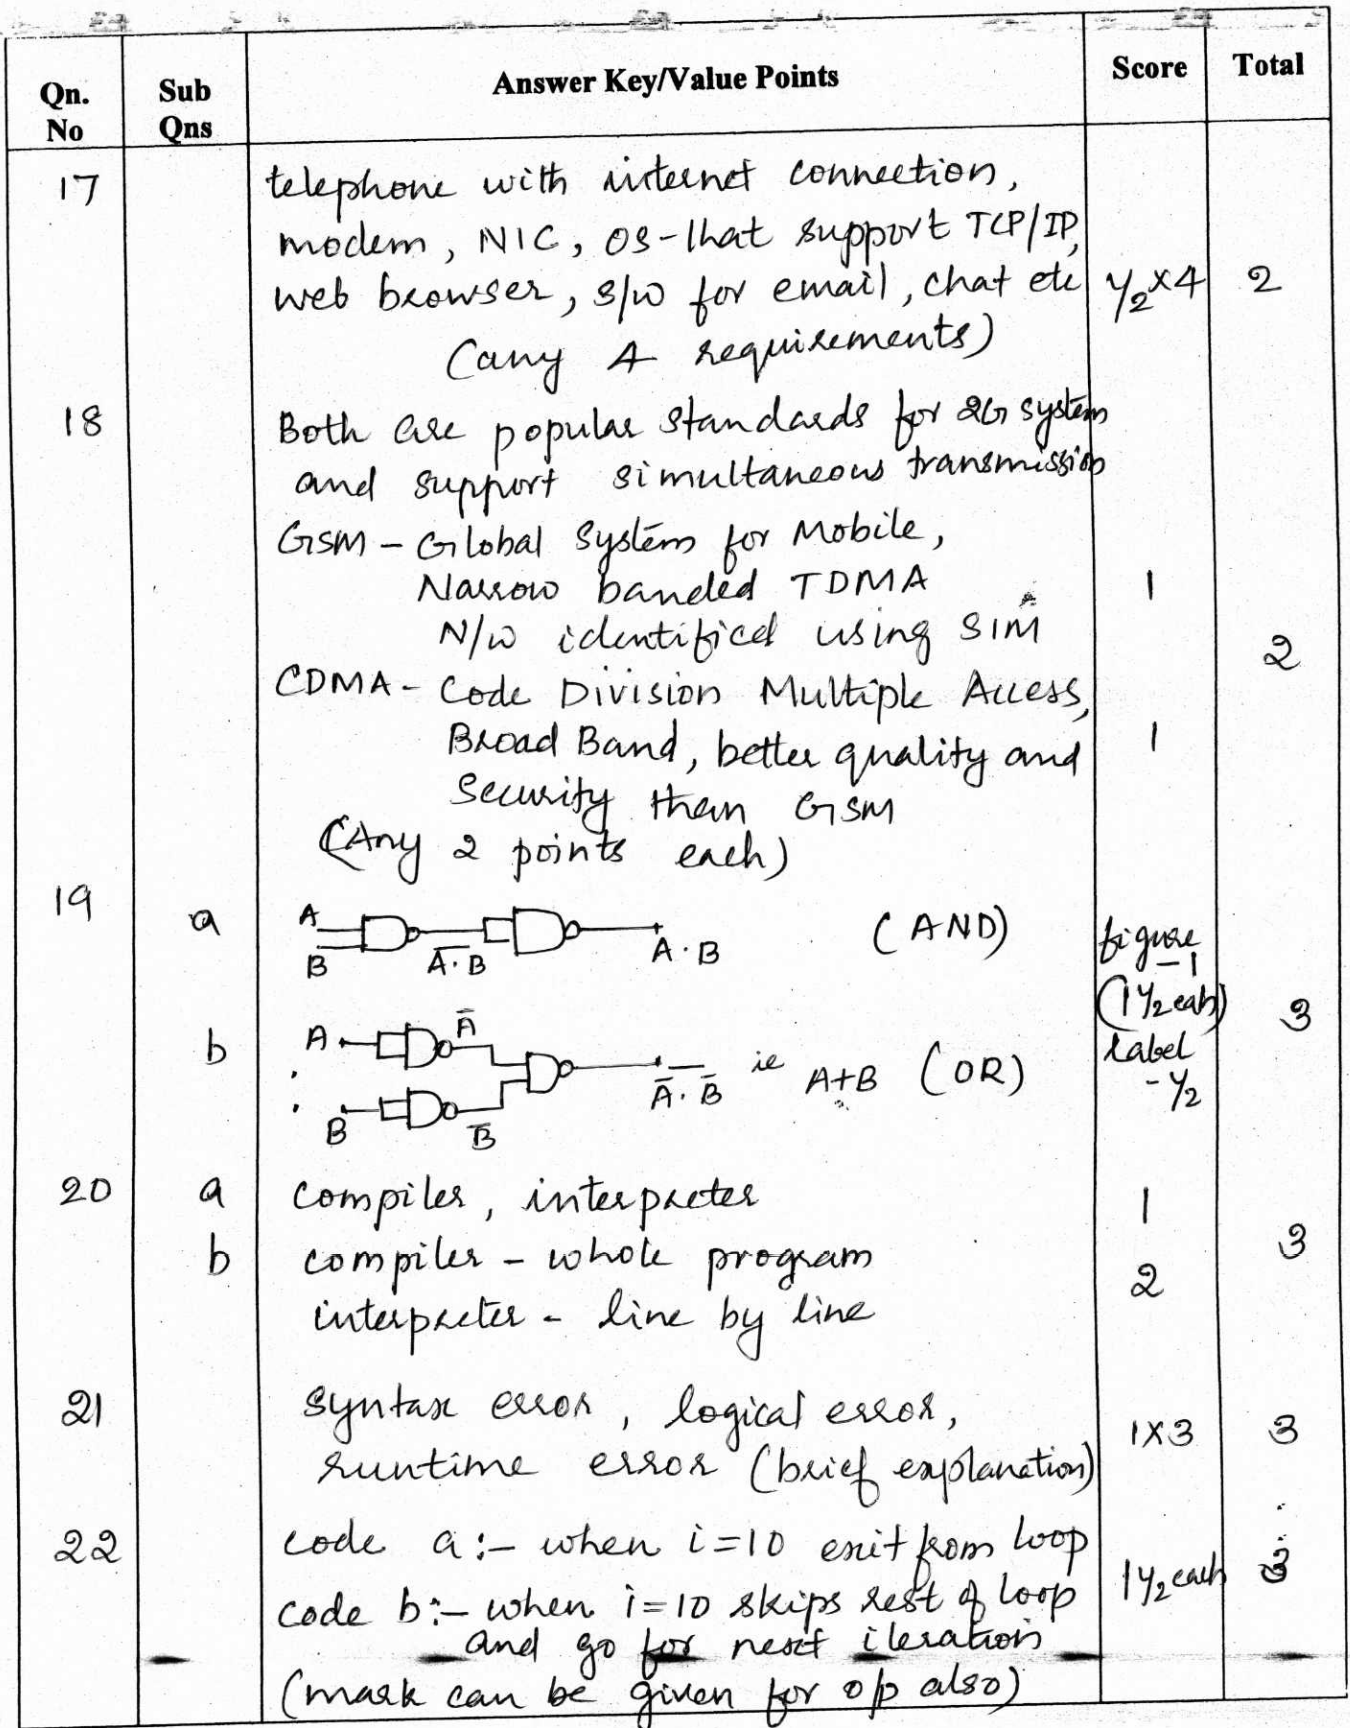 Qn. No Sub Qns Answer Key/Value Points Score Total
17 telephone with internet connection,
modem, NIC, OS-that support TCP/IP,
web browser, s/w for email, chat etc ½×4 2
(any 4 requirements)
18 Both are popular standards for 2G system
and support simultaneous transmission
GSM - Global System for Mobile,
Narrow banded TDMA 1
N/w identified using SIM
2
CDMA - Code Division Multiple Access,
Broad Band, better quality and 1
Security than GSM
(Any 2 points each)
19 a A B A̅.̅B̅ A.B (AND) figure - 1
(1½ each) 3
b A A̅ B B̅ A̅.B̅ ie A+B (OR) label - ½
20 a compiler, interpreter 1
b compiler - whole program 3
interpreter - line by line 2
21 Syntax error, logical error,
runtime error (brief explanation) 1×3 3
22 code a:- when i=10 exit from loop
code b:- when i=10 skips rest of loop 1½ each 3
and go for next iteration
(mark can be given for o/p also)